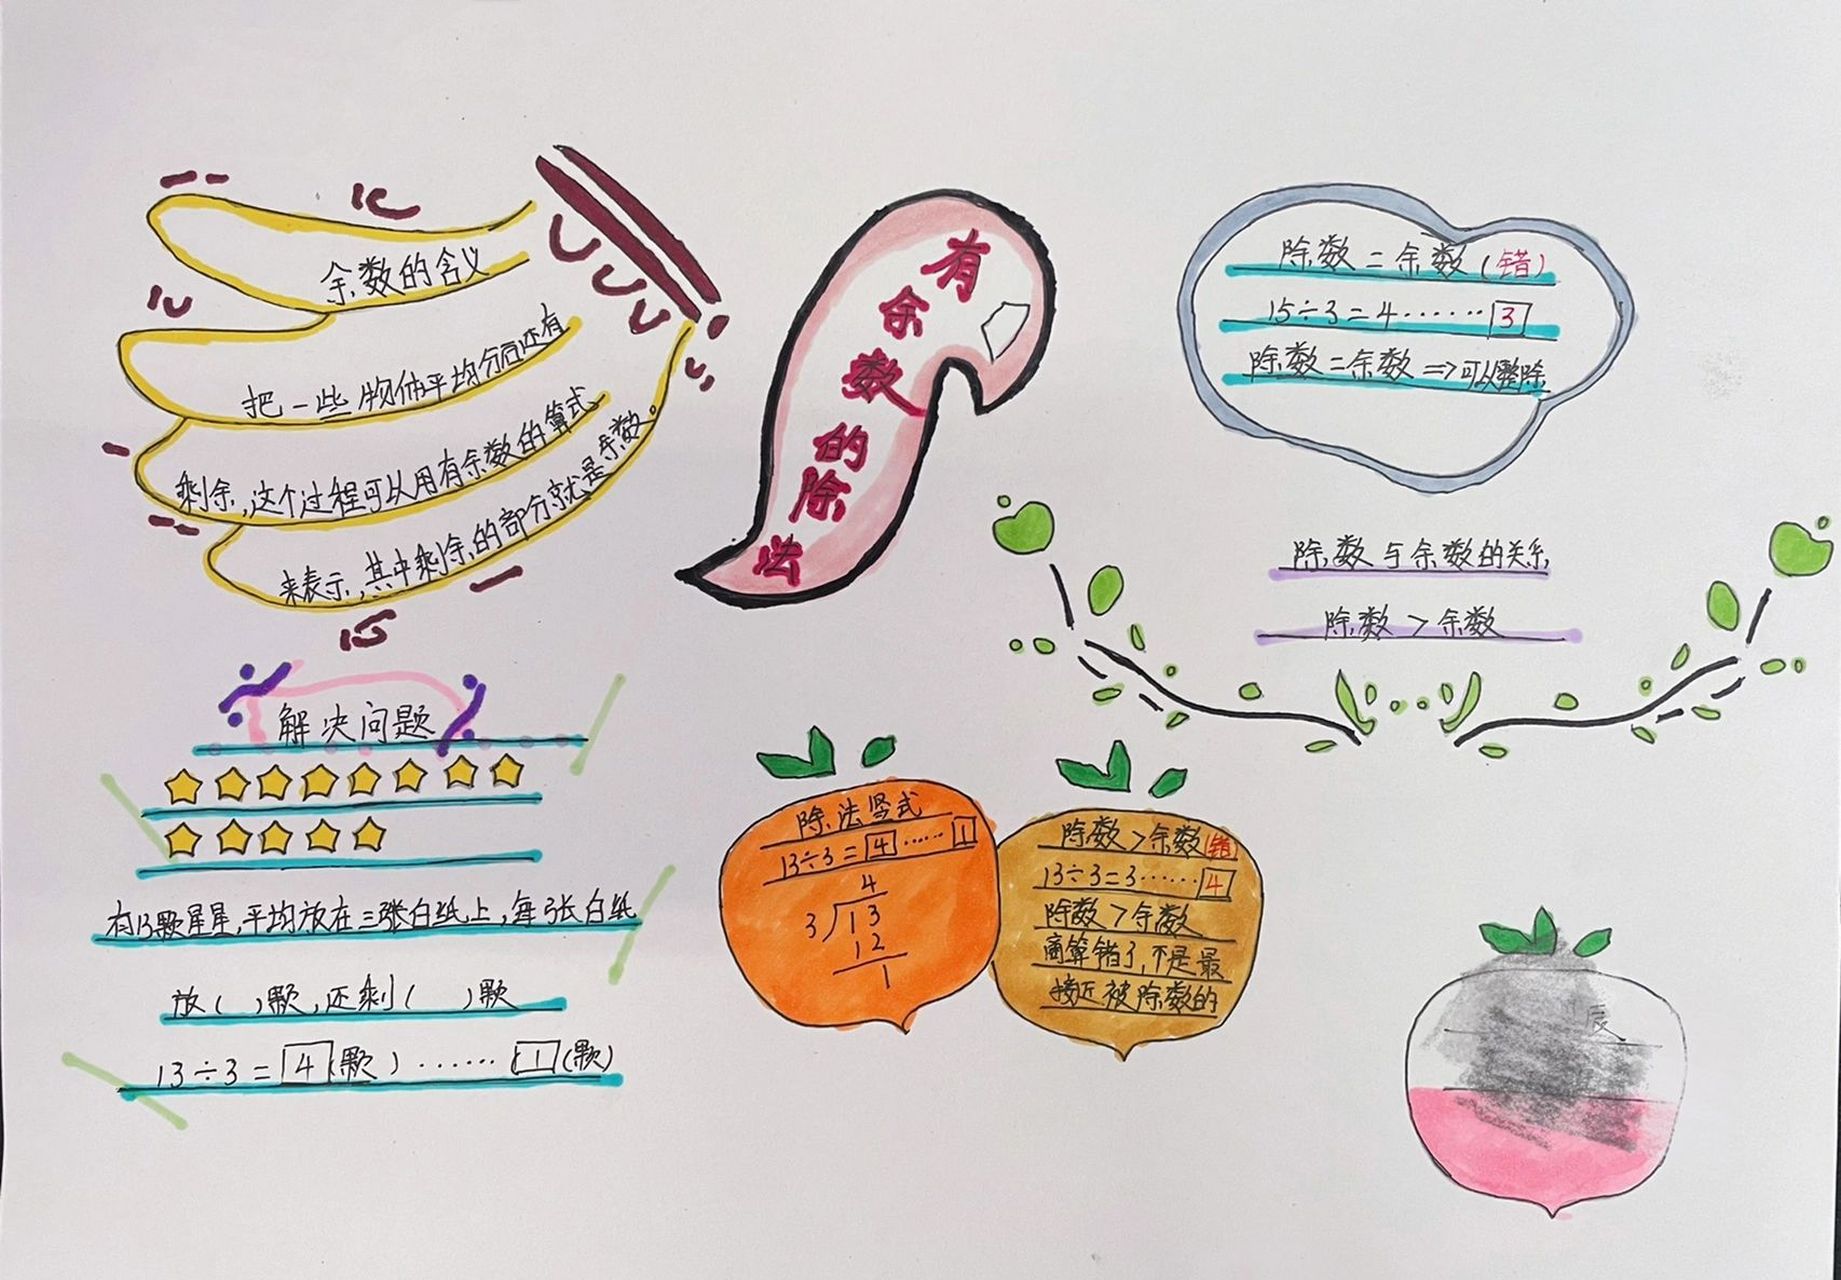 余数的含义
把一些物体平均分后还有
剩余,这个过程可以用有余数的算式
来表示,其中剩余的部分就是余数。
有余数的除法
除数=余数(错)
15÷3=4……3
除数=余数=>可以整除
除数与余数的关系
除数>余数
解决问题
有13颗星星,平均放在三张白纸上,每张白纸
放( )颗,还剩( )颗
13÷3=4(颗)……1(颗)
除法竖式
13÷3=4……1
4
3 13
12
1
除数>余数(错)
13÷3=3……4
除数>余数
商算错了,不是最
接近被除数的